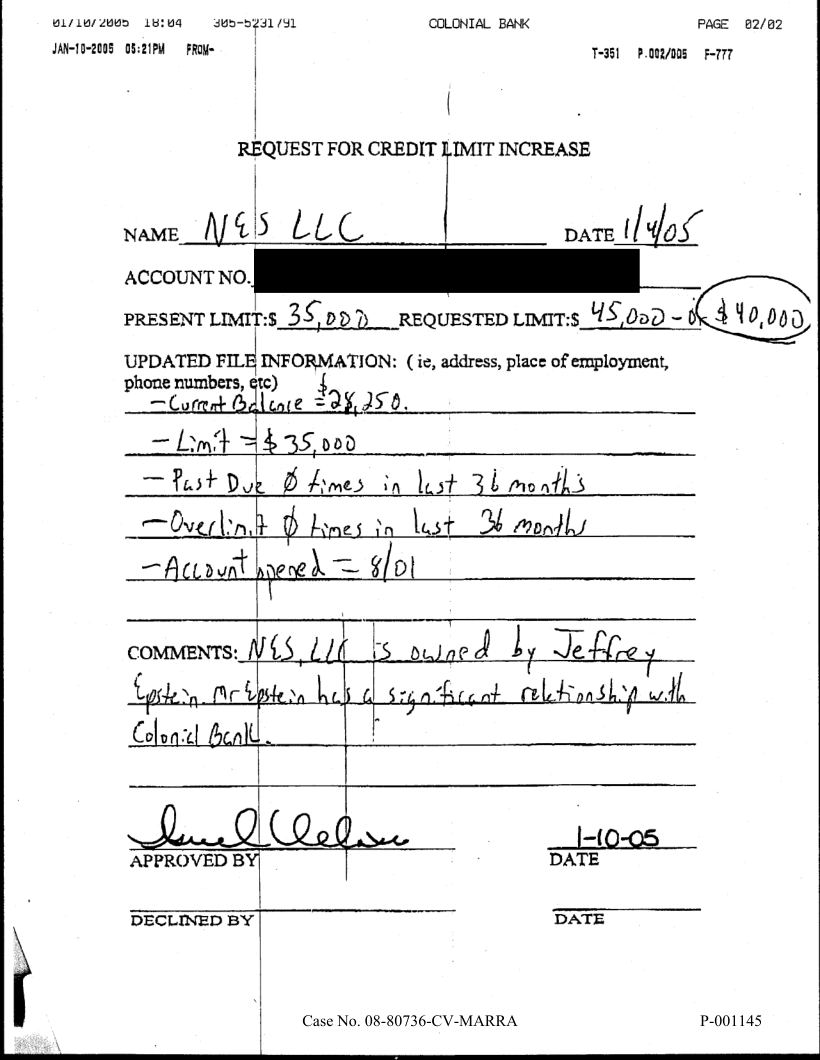 01/10/2005 18:04 305-5231791 COLONIAL BANK PAGE 02/02
JAN-10-2005 05:21PM FROM- T-351 P.002/005 F-777
REQUEST FOR CREDIT LIMIT INCREASE
NAME NES LLC DATE 1/4/05
ACCOUNT NO.
PRESENT LIMIT:$ 35,000 REQUESTED LIMIT:$ 45,000 - or $40,000
UPDATED FILE INFORMATION: ( ie, address, place of employment,
phone numbers, etc)
- Current Balance = $28,250.
- Limit = $35,000
- Past Due Ø times in last 36 months
- Overlimit Ø times in last 36 months
- Account opened = 8/01
COMMENTS: NES, LLC is owned by Jeffrey
Epstein. Mr Epstein has a significant relationship with
Colonial Bank.
1-10-05
APPROVED BY DATE
DECLINED BY DATE
Case No. 08-80736-CV-MARRA P-001145